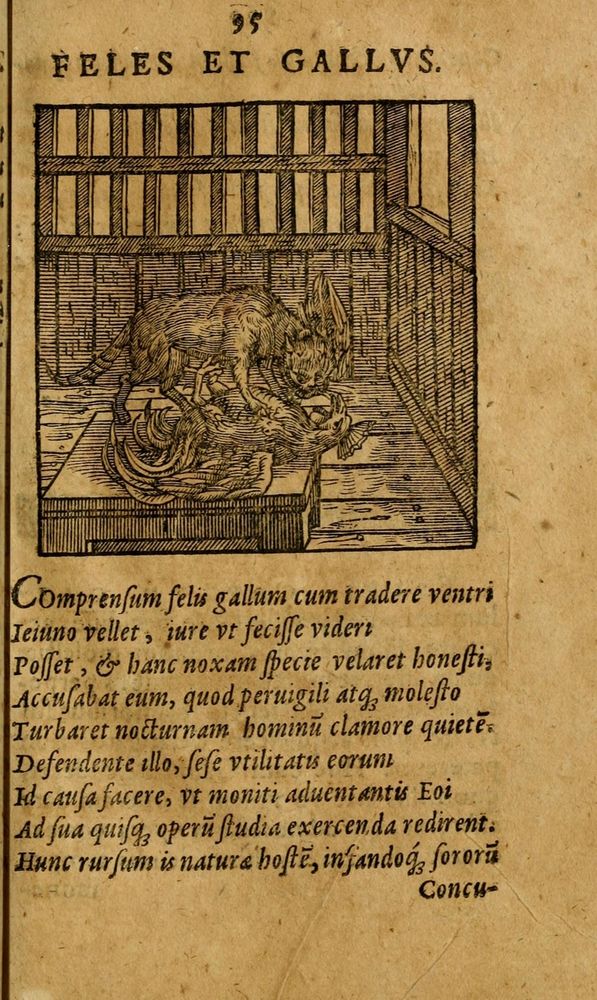 95
FELES ET GALLVS.
Comprenſum felis gallum cum tradere ventri
Ieiuno vellet, iure vt feciſſe videri
Poſſet, & hanc noxam ſpecie velaret honeſti,
Accuſabat eum, quod peruigili atq; moleſto
Turbaret nocturnam hominū clamore quietē.
Defendente illo, ſeſe vtilitatis eorum
Id cauſa facere, vt moniti aduentantis Eoi
Ad ſua quiſq; operū ſtudia exercenda redirent.
Hunc rurſum is naturæ hoſtē, infandoq́; ſororū
Concu-